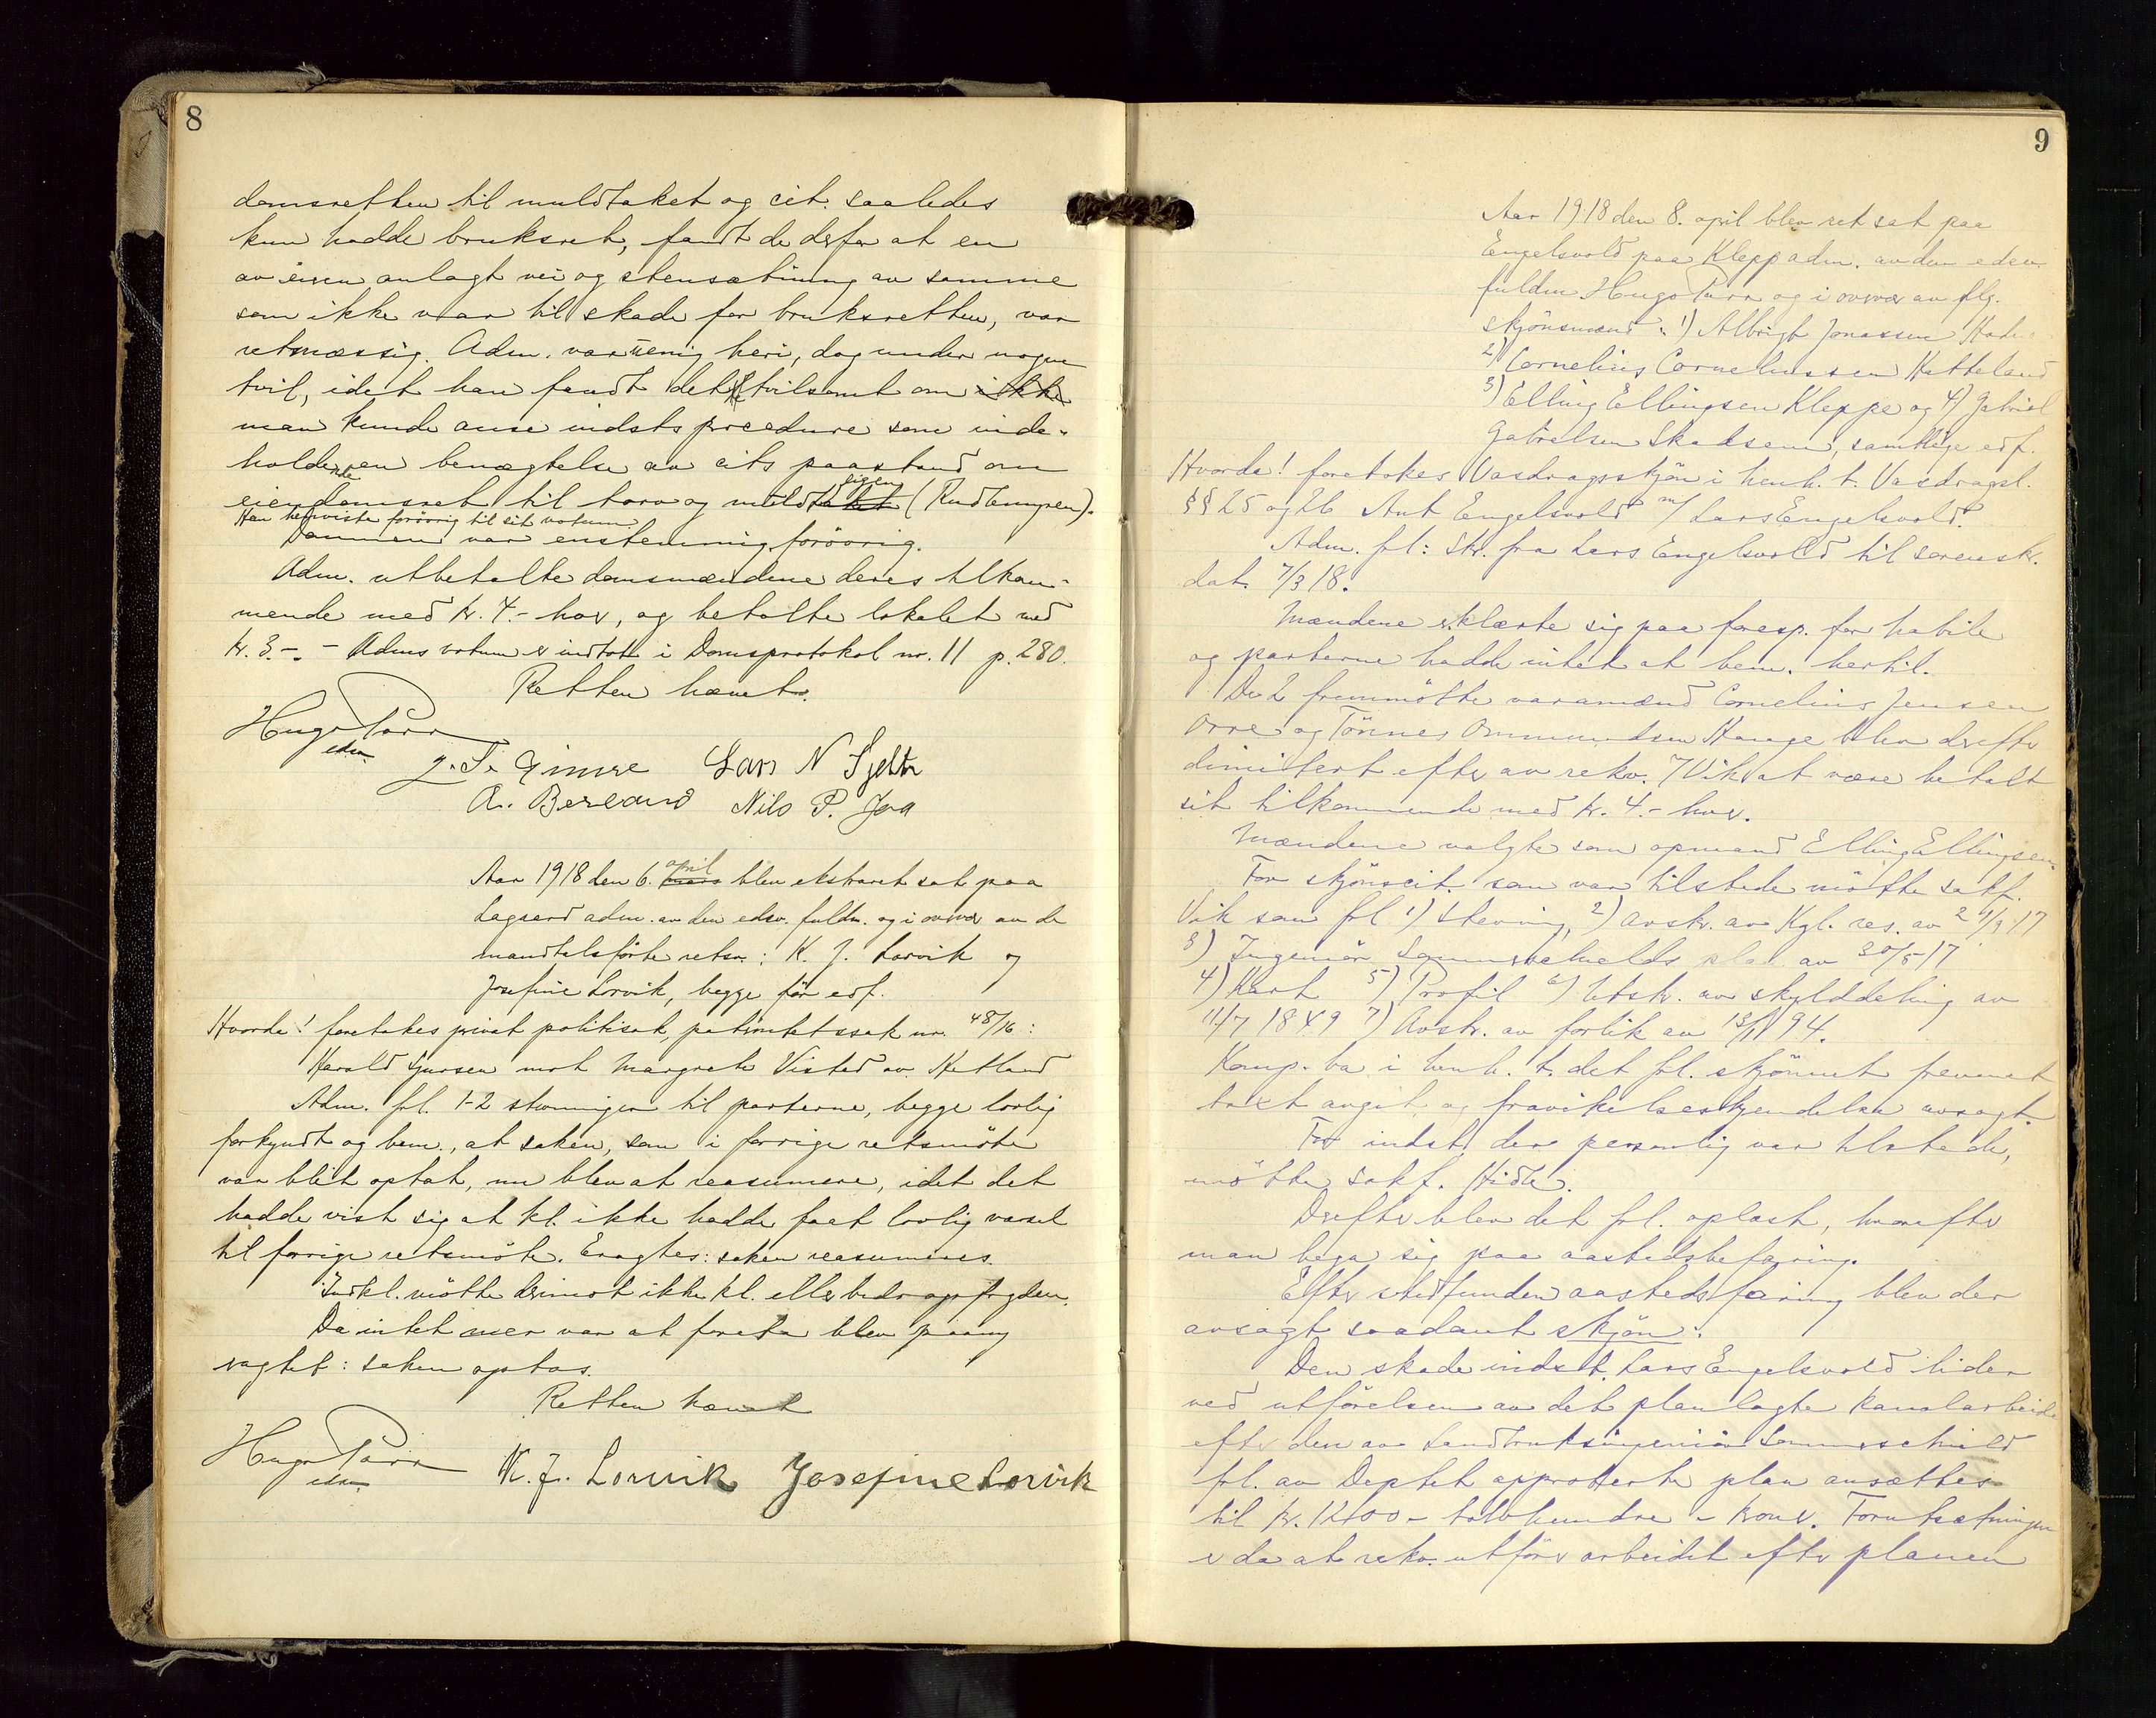 8
domsretten til muldtaket og cit. saaledes
kun hadde bruksret, fandt de derfor at en
av eieren anlagt vei og stensætning av samme
som ikke var til skade for bruksretten, var
retmæssig. Adm. var enig heri, dog under nogen
tvil, idet han fandt det tvilsomt om ikke
man kunde anse indsts procedure som inde-
holdende en benægtelse av cits paastand om
eiendomsret til torv og muldtaket (Rudlempen).
Han henviste forövrig til sit votum.
Dommen var enstemmig forövrig.
Adm. utbetalte domsmændene deres tilkom-
mende med kr. 4.- hver, og betalte lokalet med
kr. 3.-. - Adms votum er indtat i Domsprotokol nr. 11 p. 280.
Retten hævet.
Hugo Parr
edsv.
J. S. Gimre Lars N Tjelta
A. Berland Nils P. Joa
Aar 1918 den 6. april blev ekstraret sat paa
Lagård adm. av den edsv. fuldm. og i overvær av de
mandtalsförte retsv.: K. J. Lorvik og
Josefine Lorvik, begge för edf.
Hvorda! foretokes privat politisak, paternitetssak nr. 48/16:
Harald Sjursen mot Margrete Visted av Hetland
Adm. frl. 1-2 stevninger til parterne, begge lovlig
forkyndt og bem., at saken, som i forrige retsmöte
var blit optat, nu blev at reasumere, idet det
hadde vist sig at kl. ikke hadde faat lovlig varsel
til forrige retsmöte. Eragtes: saken reasumeres.
Indkl. mötte derimot ikke kl. eller bidragsfogden.
Da intet mer var at foreta blev paany
eragtet: saken optas.
Retten hævet
Hugo Parr
edsv.
K. J. Lorvik Josefine Lorvik
9
Aar 1918 den 8. april blev ret sat paa
Engelsvold paa Klepp adm. av den edsv.
fuldm Hugo Parr og i overvær av flg.
skjönsmænd: 1) Albrigt Jonassen
2) Cornelius Corneliussen Hatteland
3) Elling Ellingsen Kleppe og 4) Gabriel
Gabrielsen Skadsem, samtlige edf.
Hvorda! foretokes Vasdragsskjön i henh. t. Vasdragsl.
§§ 25 og 26 Ant Engelsvold m/ Lars Engelsvold.
Adm. frl: Skr. fra Lars Engelsvold til sorenskr.
dat. 7/3 18.
Mændene erklærte sig paa foresp. for habile
og parterne hadde intet at bem. hertil.
De 2 fremmötte varamænd Cornelius Jensen
Orre og Tönnes Ommundsen Hauge blev derefter
dimitert efter av rekv. v/ Vik at være betalt
sit tilkommende med kr. 4.- hver.
Mændene valgte som opmand Elling Ellingsen
For skjönscit. som var tilstede mötte sakf.
Vik som frl 1) Stevning, 2) avskr. av Kgl. res. av 21/9 17
3) Ingeniör Sommerschields plan av 30/5 17
4) Kart 5) Profil 6) Utskr. av skylddeling av
11/7 1849 7) Avskr. av forlik av 13/11 94.
Komp. ba i henh. t. det frl. skjönnet fremmet
takst avgit og fravikelseskjendelse avsagt.
For indst. der personlig var tilstede,
mötte sakf. Hidle.
Derefter blev det frl. oplæst, hvorefter
man bega sig paa aastedsbefaring.
Efter stedfunden aastedsfaring blev der
avsagt saadant skjön:
Den skade indst. Lars Engelsvold lider
ved utförelsen av det planlagte kanalarbeide
efter den av Landbruksingeniör Sommerschield
frl. av Deptet approberte plan ansættes
til kr. 1200 - tolvhundre - kroner. Forutsætningen
er da at rekv. utförer arbeidet efter planen